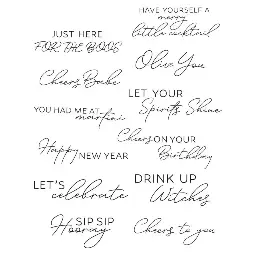 HAVE YOURSELF A
merry
little cocktail
JUST HERE
FOR THE BOOS
Cheers Babe
Olive You
LET YOUR
Spirits Shine
YOU HAD ME AT
martini
Cheers ON YOUR
Birthday
Happy
NEW YEAR
LET'S
celebrate
DRINK UP
Witches
SIP SIP
Hooray
Cheers to you